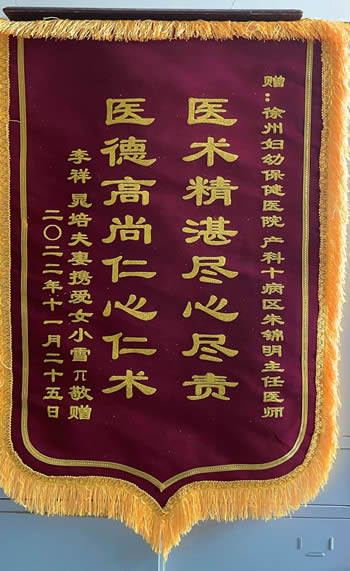 赠：徐州妇幼保健医院 产科十病区朱锦明主任医师
医术精湛尽心尽责
医德高尚仁心仁术
李祥 晁培夫妻携爱女小雪π敬赠
二〇二二年十一月二十五日